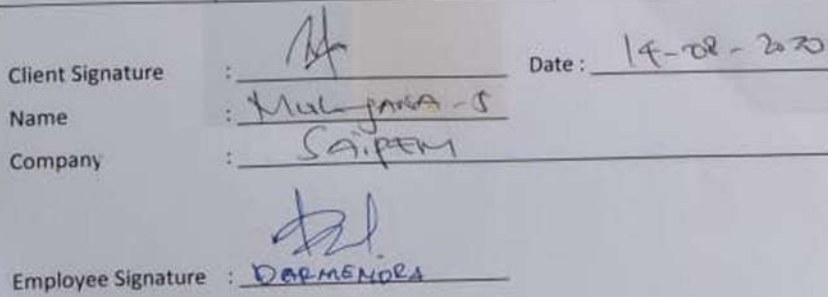 Client Signature : Date : 14-08-2020
Name :
Company : SAiPEM
Employee Signature : DARMENDRA